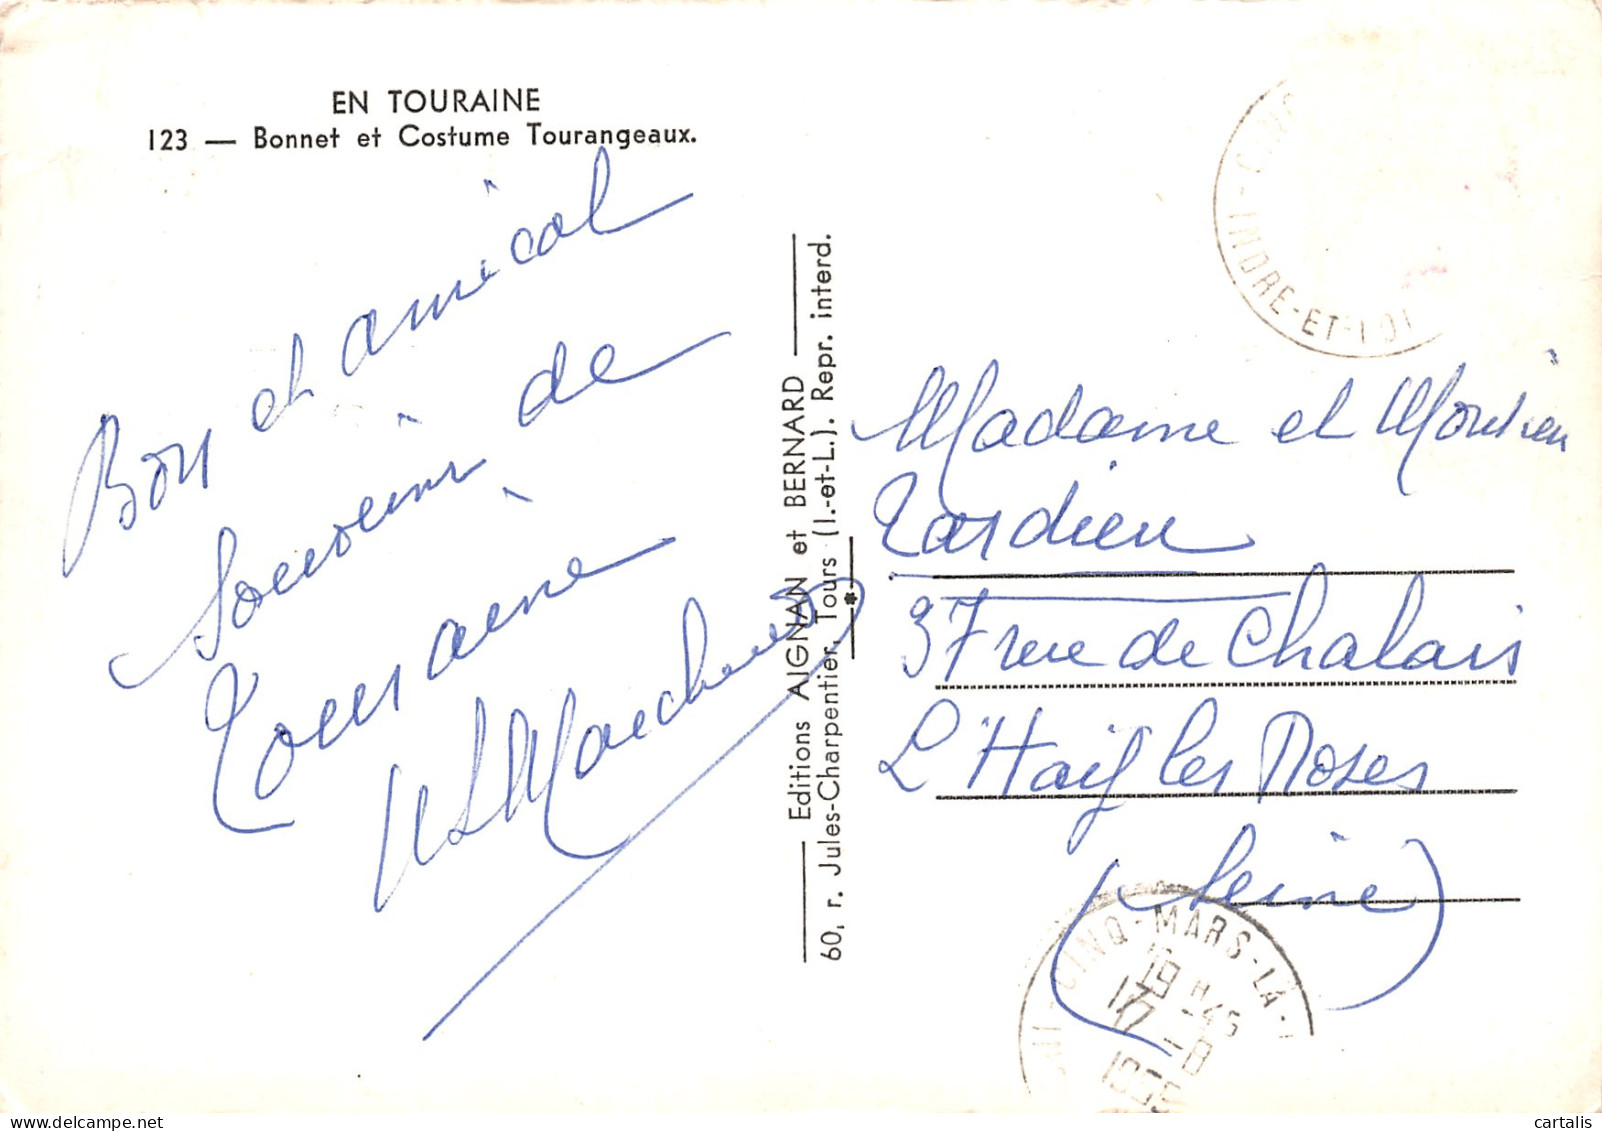 EN TOURAINE
123 — Bonnet et Costume Tourangeaux.
Bon et amical
Souvenir de
Touraine
Editions AIGNAN et BERNARD
60, r. Jules-Charpentier, Tours (I.-et-L.). Repr. interd.
INDRE-ET-LOI
Madame et Monsieur
Tardieu
37 rue de Chalais
L'Haÿ les Roses
(Seine)
CINQ-MARS-LA-
19 H 45
17 - 8